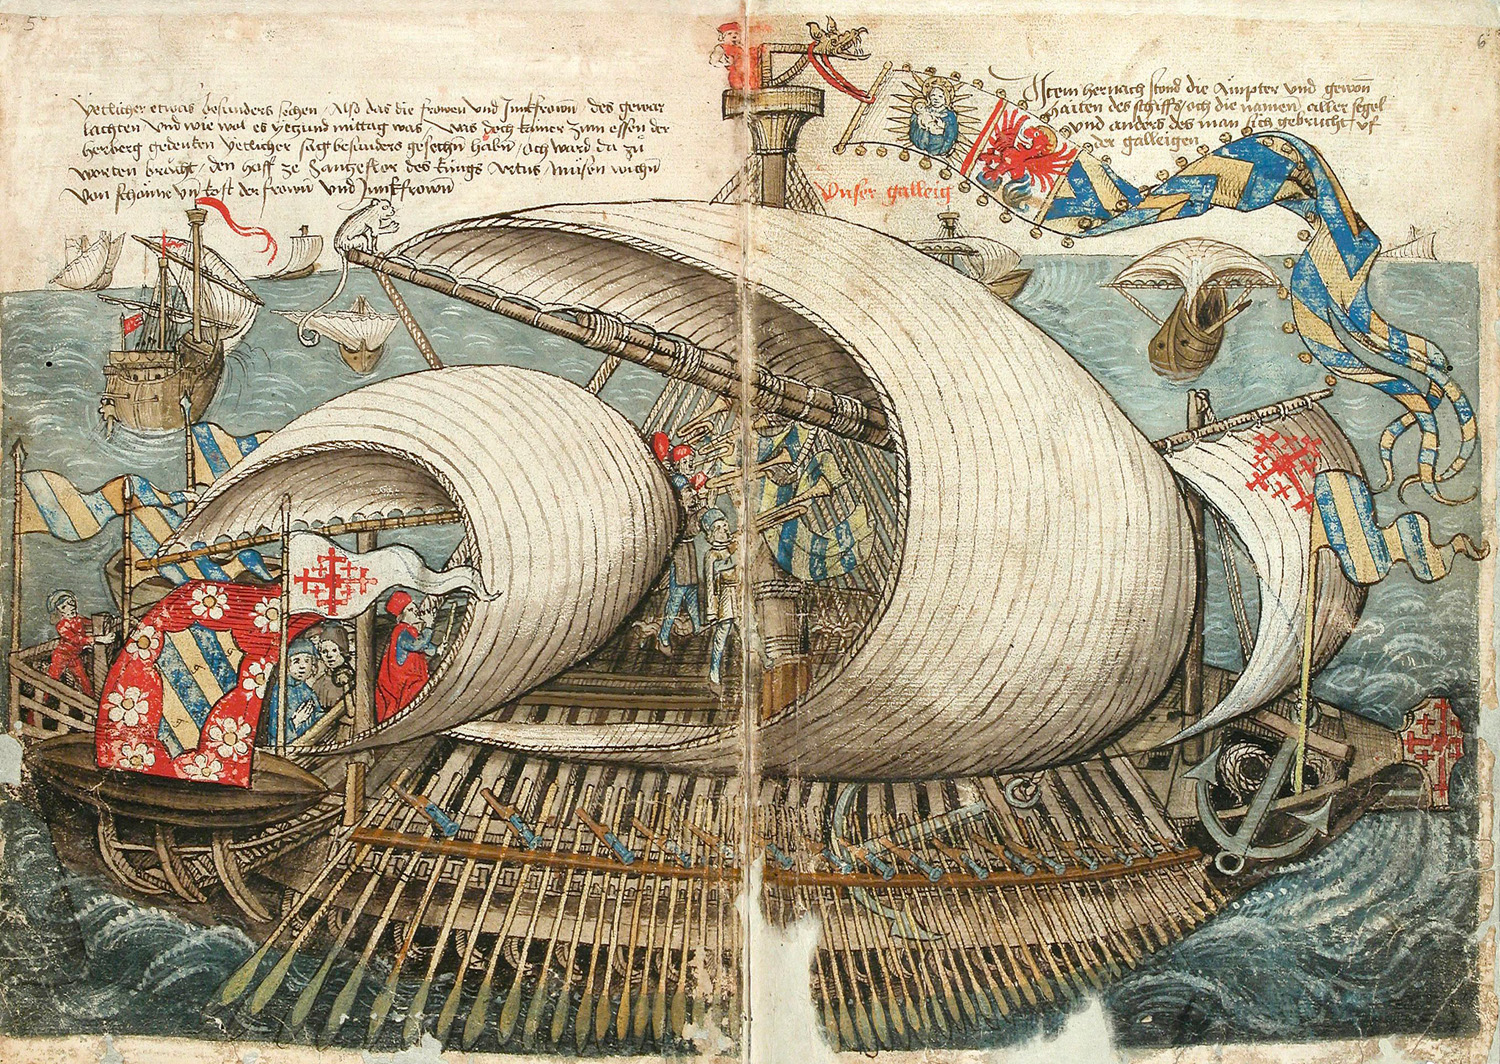 5
yetlicher etwas besunders sechen / Also das die frowen vnd Junkfrown / des gewar
lachten vnd wie wol es yegund mittag was / was doch kainer zum essen der
herberg gedenken yetlicher sagt besunders gesechn habn / Och ward da zu
worten bracht / den haff ze des kungs Artus / müsen
von schönne vn kost der frown vnd Junkfrown
6
Item hernach stond die Ämpter vnd gewon
haiten des schiffs / och die namen aller segel
vnd anders des man sich gebrucht vf
der galleigen
Vnser galleig